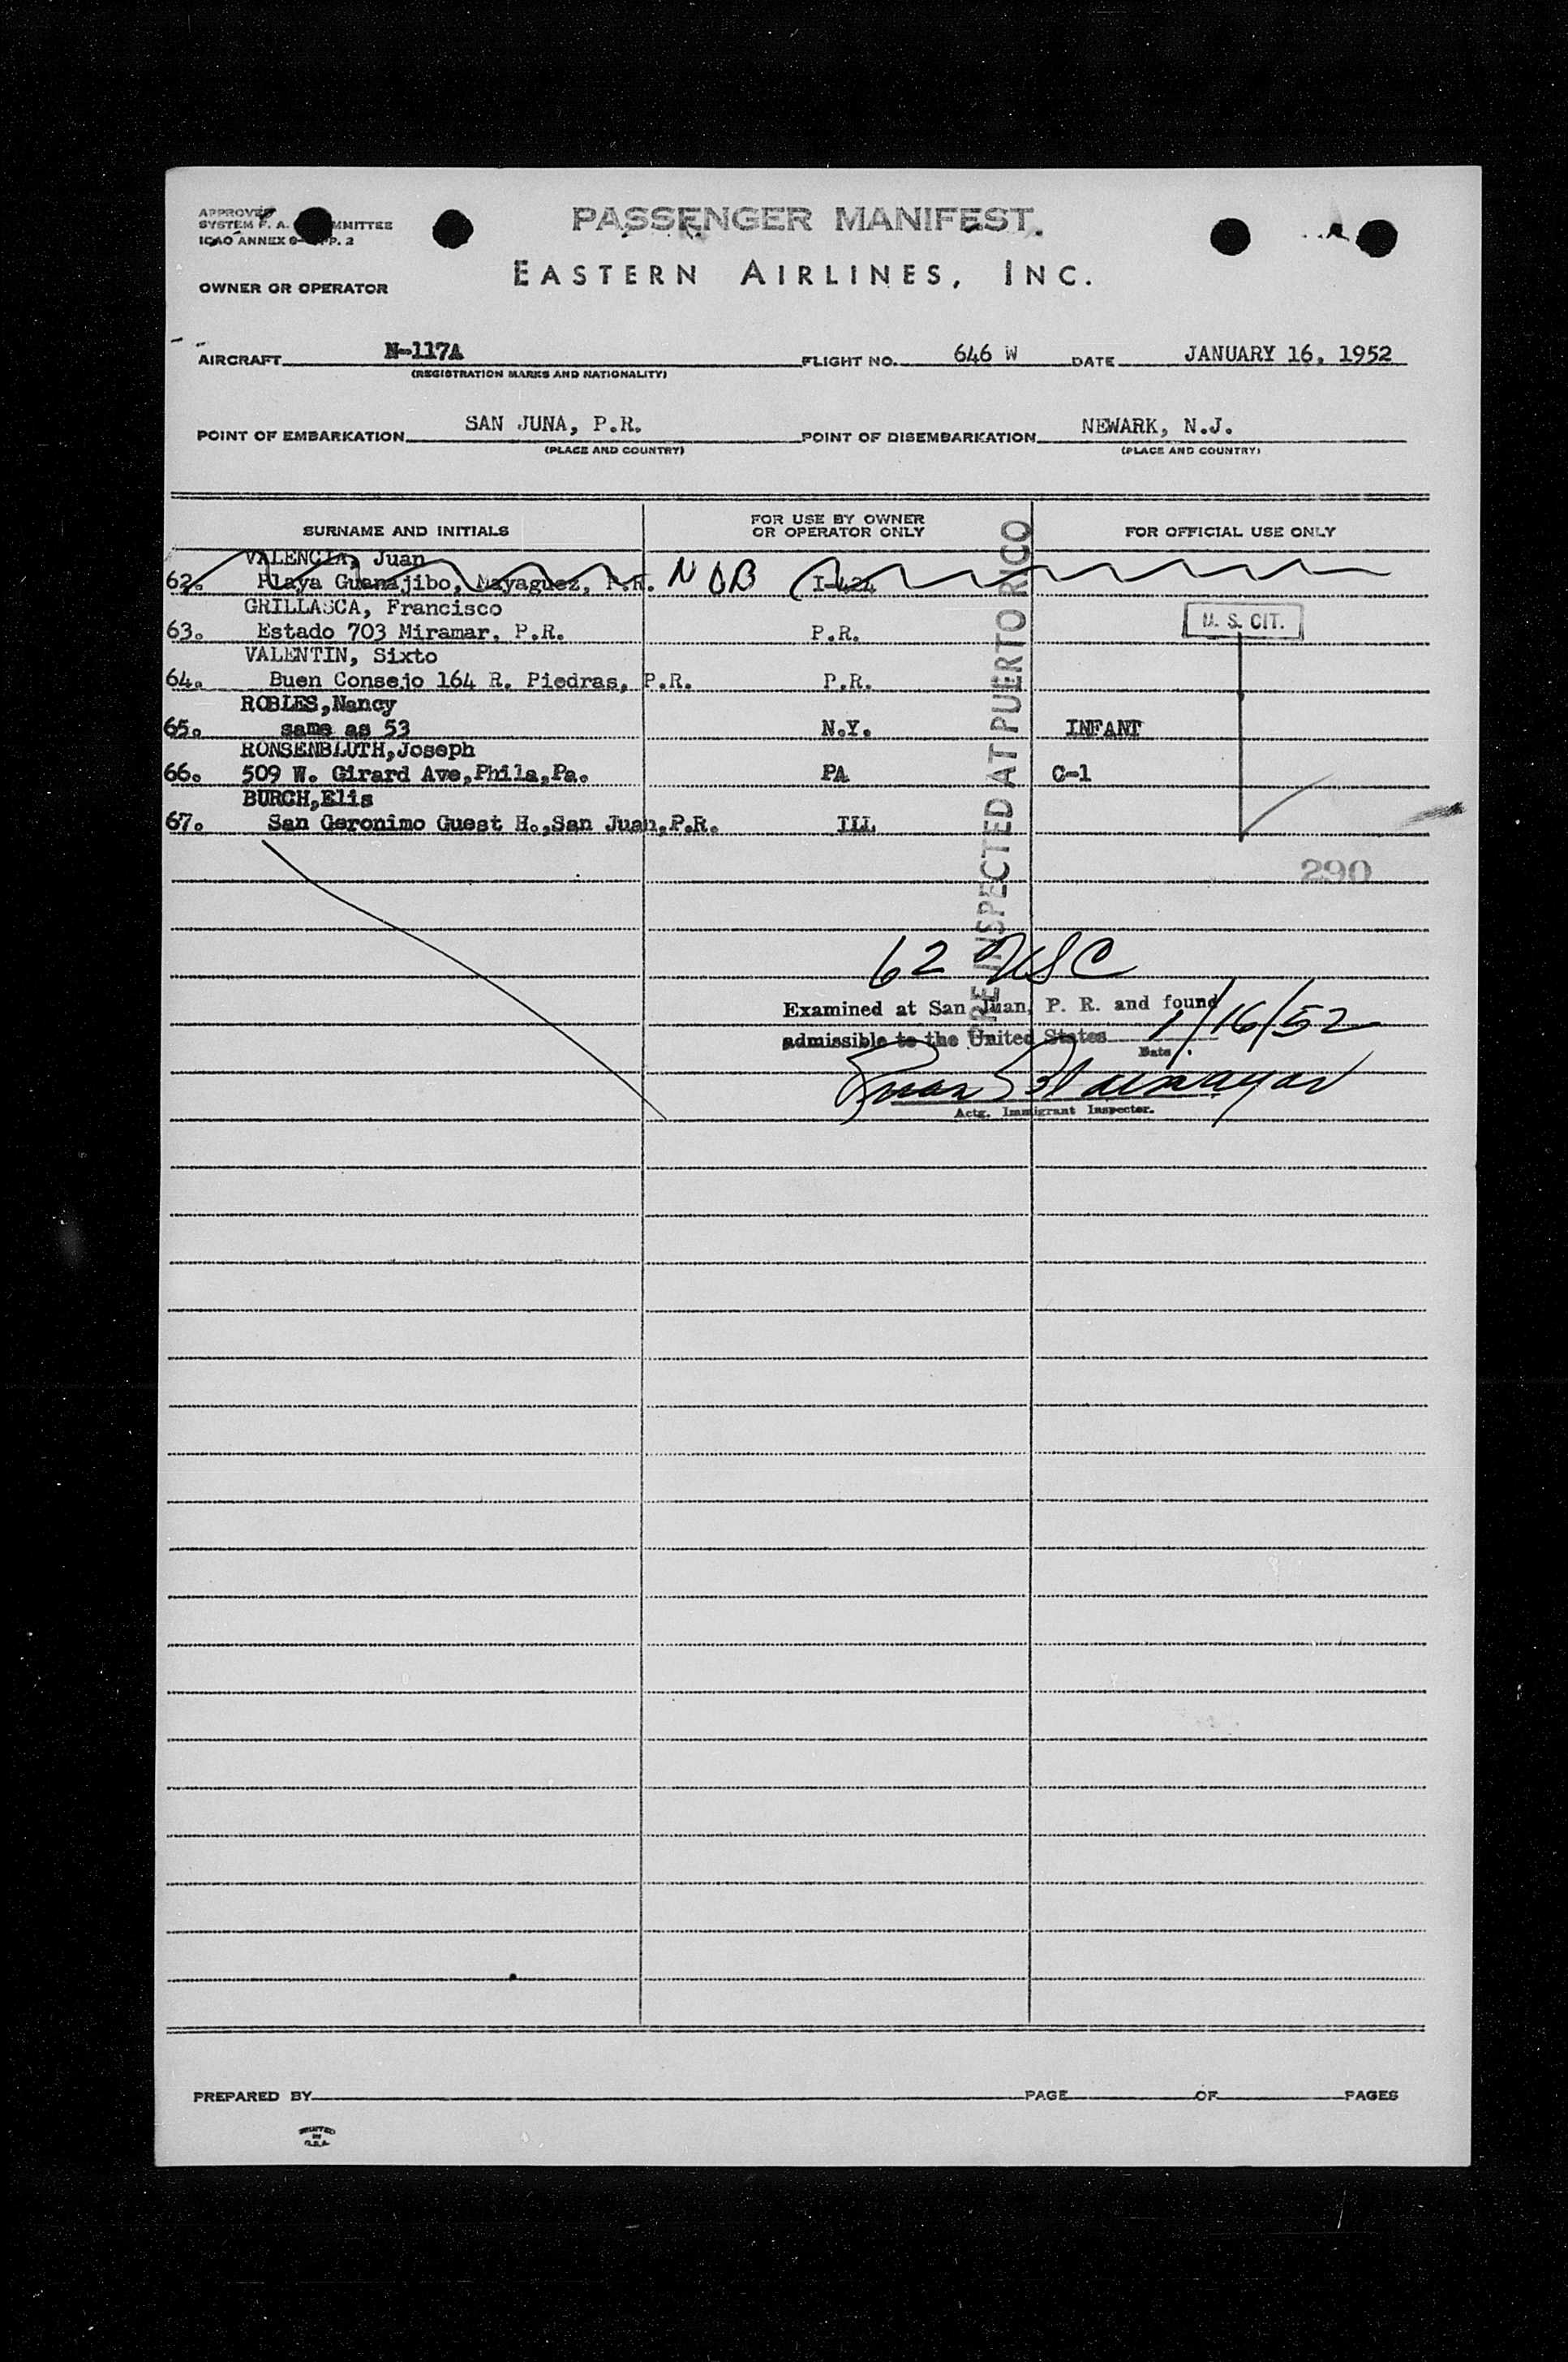 APPROVED
SYSTEM F. A. COMMITTEE
ICAO ANNEX 9—APP. 2
PASSENGER MANIFEST
EASTERN AIRLINES, INC.
OWNER OR OPERATOR
AIRCRAFT N-117A FLIGHT NO. 646 W DATE JANUARY 16, 1952
(REGISTRATION MARKS AND NATIONALITY)
POINT OF EMBARKATION SAN JUNA, P.R. POINT OF DISEMBARKATION NEWARK, N.J.
(PLACE AND COUNTRY) (PLACE AND COUNTRY)
SURNAME AND INITIALS FOR USE BY OWNER OR OPERATOR ONLY FOR OFFICIAL USE ONLY
VALENCIA, Juan
62. Playa Guanajibo, Mayaguez, P.R. NOB I-424
GRILLASCA, Francisco
63. Estado 703 Miramar, P.R. P.R. U. S. CIT.
VALENTIN, Sixto
64. Buen Consejo 164 R. Piedras, P.R. P.R.
ROBLES,Nancy
65. same as 53 N.Y. INFANT
RONSENBLUTH,Joseph
66. 509 W. Girard Ave,Phila,Pa. PA C-1
BURCH,Elis
67. San Geronimo Guest H.,San Juan,P.R. ILL
PRE INSPECTED AT PUERTO RICO
290
62 USC
Examined at San Juan, P. R. and found
admissible to the United States 1/16/52
Date
Actg. Immigrant Inspector.
PREPARED BY PAGE OF PAGES
PRINTED
IN
U.S.A.